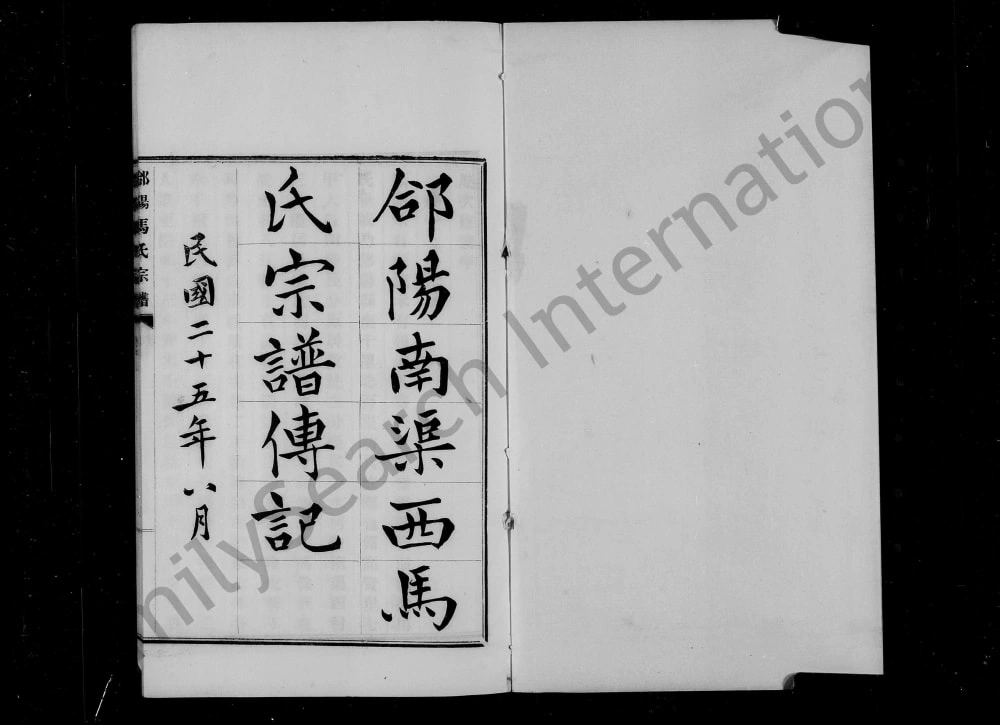 郃陽南渠西馬
氏宗譜傳記
民國二十五年八月
郃陽馬氏宗譜
milySearch Internation